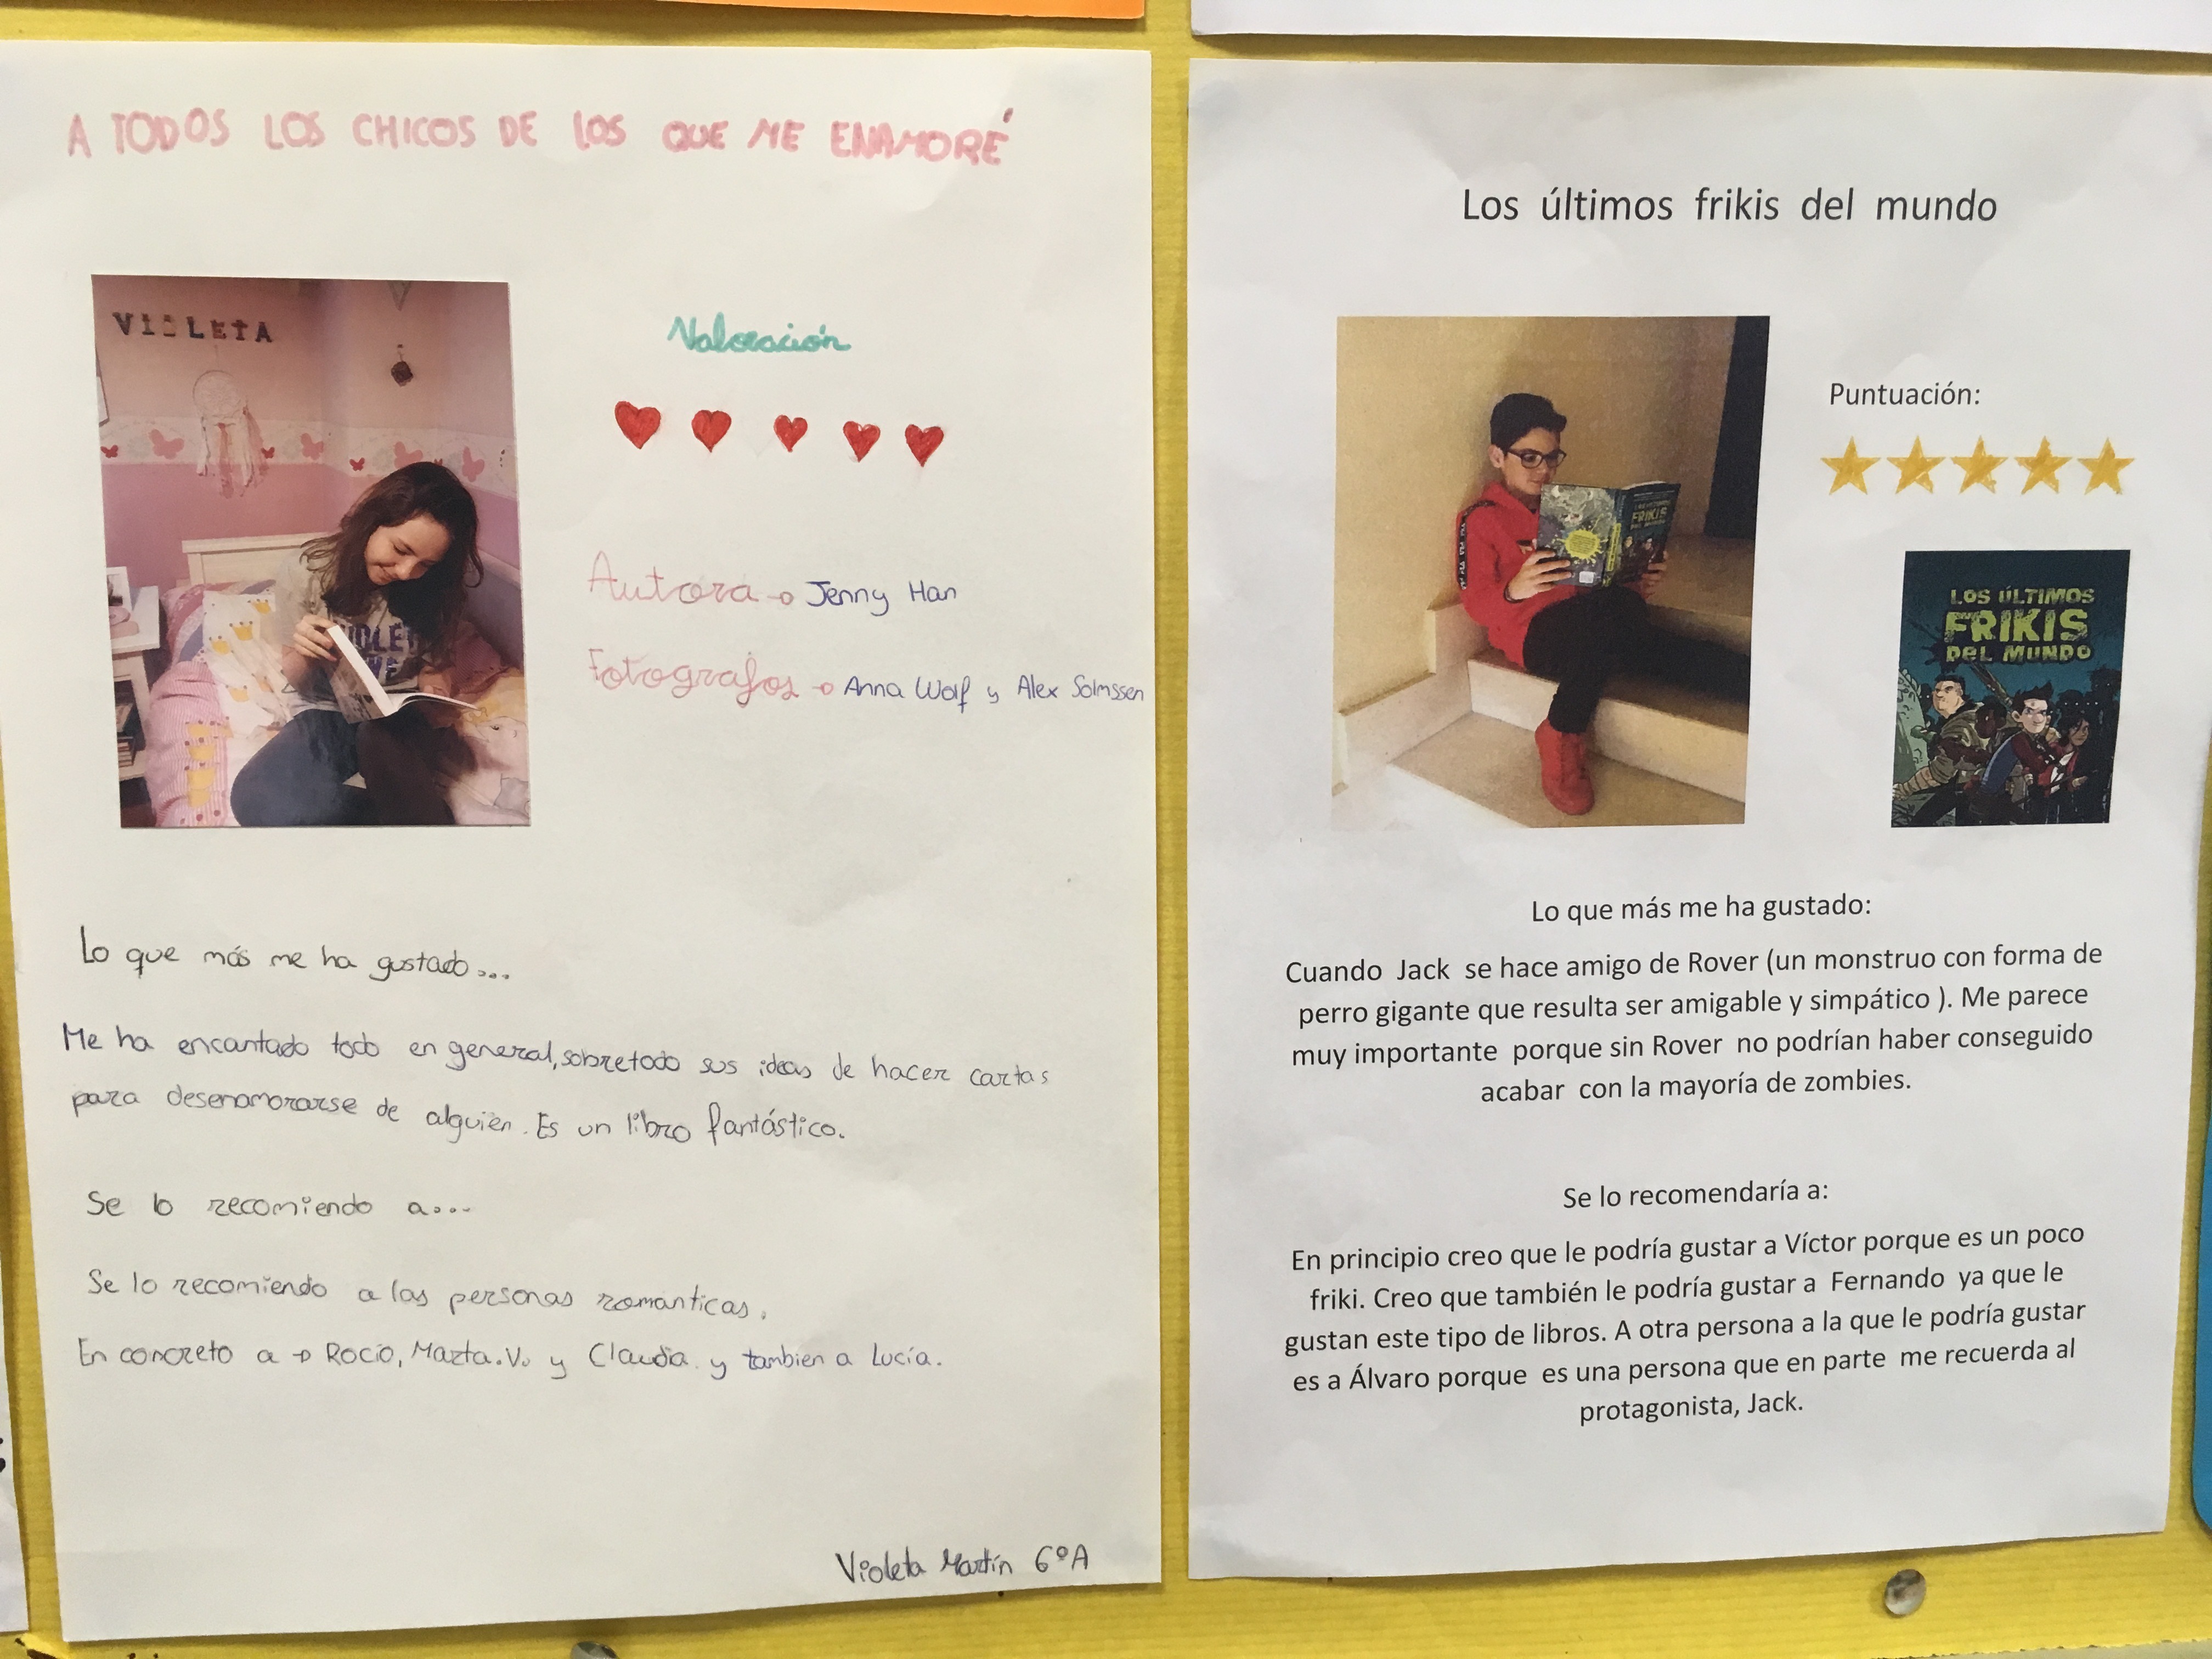 A TODOS LOS CHICOS DE LOS QUE ME ENAMORÉ
VIOLETA
Valoración
Autora → Jenny Han
Fotografos → Anna Wolf y Alex Solmssen
Lo que más me ha gustado...
Me ha encantado todo en general, sobretodo sus ideas de hacer cartas
para desenamorarse de alguien. Es un libro fantástico.
Se lo recomiendo a....
Se lo recomiendo a las personas romanticas.
En concreto a → Rocío, Marta.V. y Claudia. y tambien a Lucía.
Violeta Martín 6ºA
Los últimos frikis del mundo
FRIKIS
DEL MUNDO
Puntuación:
LOS ÚLTIMOS
FRIKIS
DEL MUNDO
Lo que más me ha gustado:
Cuando Jack se hace amigo de Rover (un monstruo con forma de
perro gigante que resulta ser amigable y simpático ). Me parece
muy importante porque sin Rover no podrían haber conseguido
acabar con la mayoría de zombies.
Se lo recomendaría a:
En principio creo que le podría gustar a Víctor porque es un poco
friki. Creo que también le podría gustar a Fernando ya que le
gustan este tipo de libros. A otra persona a la que le podría gustar
es a Álvaro porque es una persona que en parte me recuerda al
protagonista, Jack.